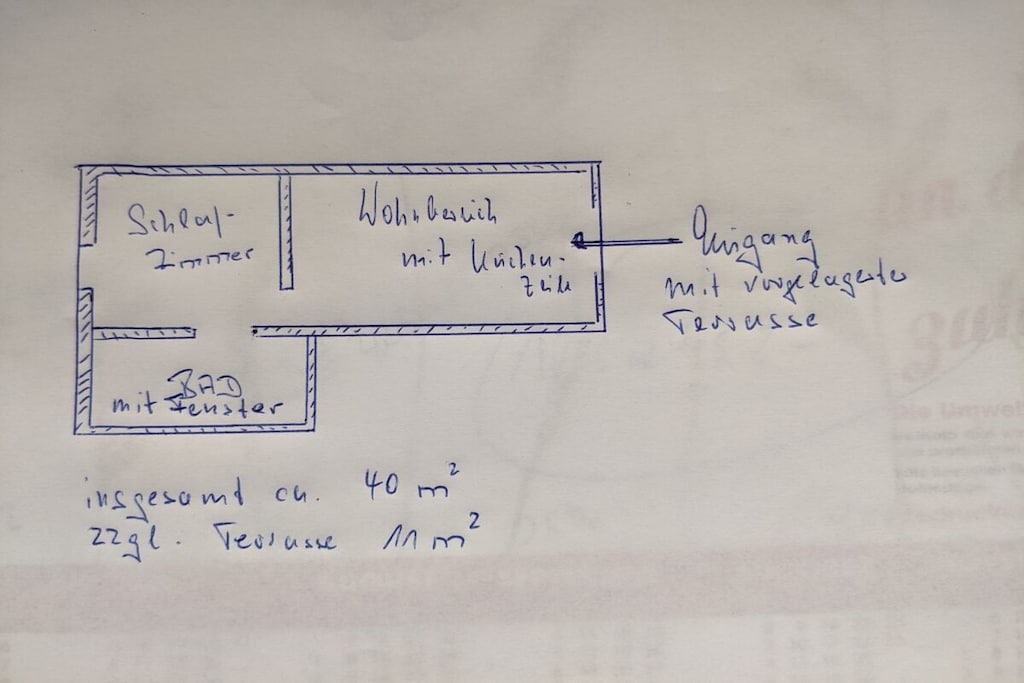 Schlaf-
zimmer
Wohnbereich
mit Küchen-
zeile
Eingang
mit vorgelagerter
Terrasse
BAD
mit Fenster
insgesamt ca. 40 m²
zzgl. Terrasse 11 m²
Die Umwel